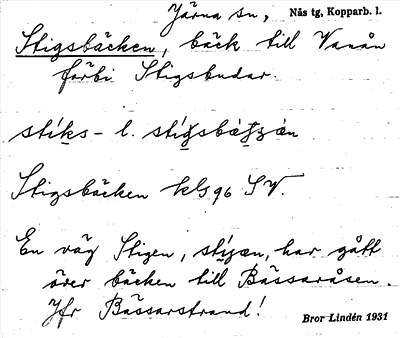 Järna sn, Nås tg, Kopparb. l.
Stigsbäcken, bäck till Vanån
förbi Stigsbudar.
stíks- l.
Stigsbäcken kls 96 SV.
En väg Stigen, har gått
över bäcken till Bässaråsen.
Jfr Bässarstrand!
Bror Lindén 1931